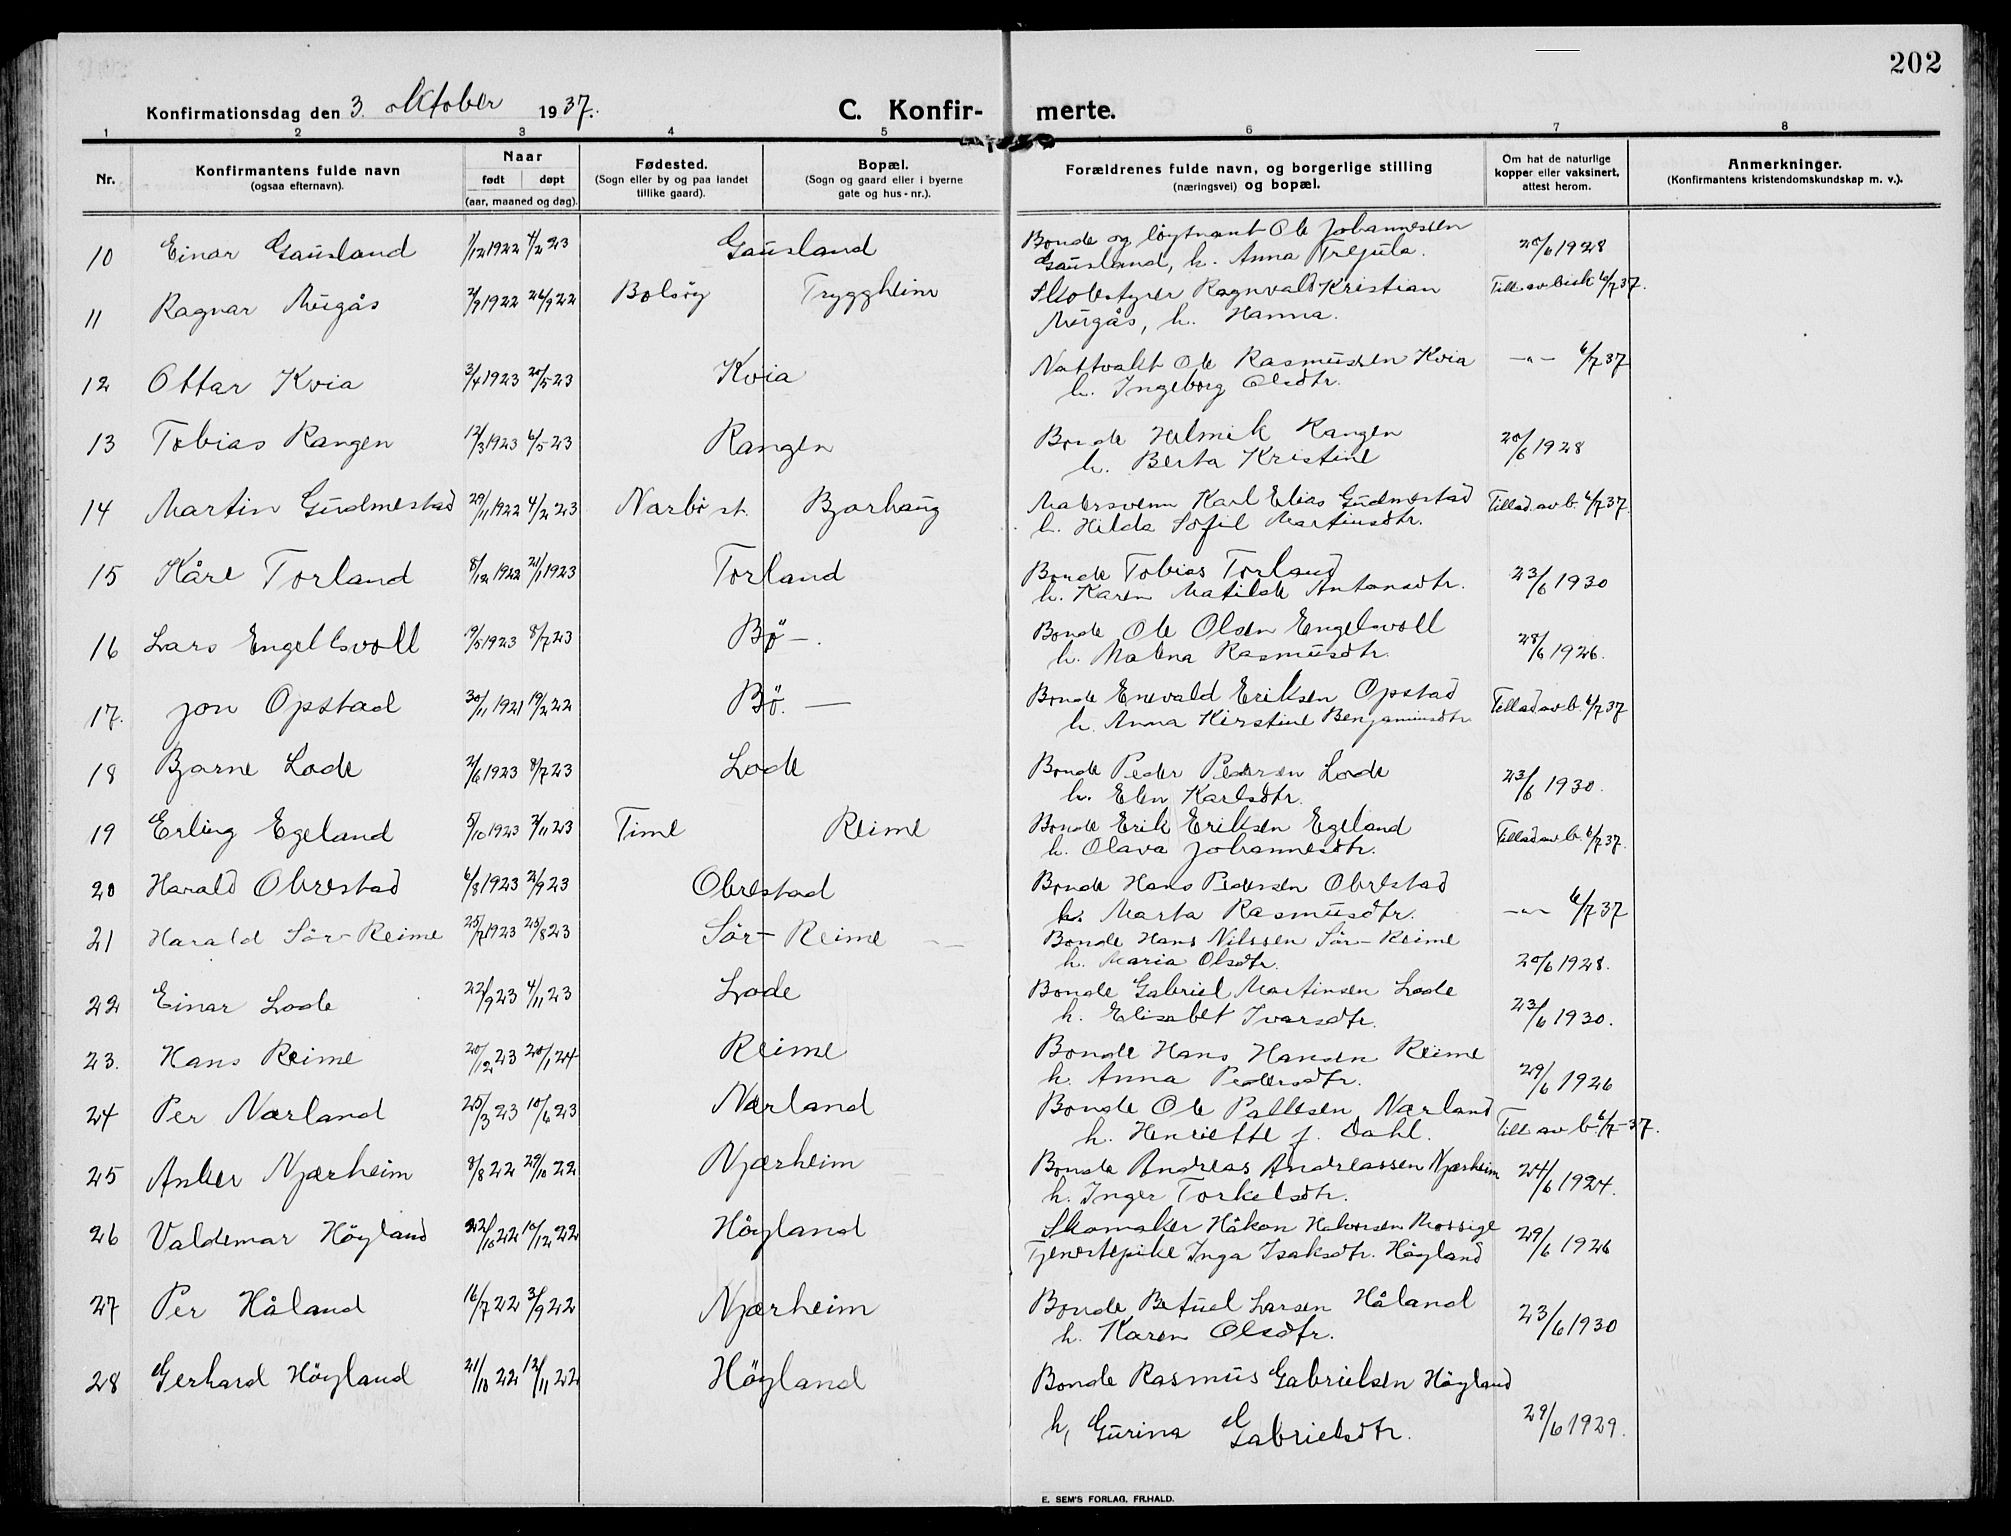 202
Konfirmationsdag den 3. oktober 1937. C. Konfir- merte.
1 2 3 4 5 6 7 8
Nr. Konfirmantens fulde navn (ogsaa efternavn). Naar født døpt (aar, maaned og dag). Fødested. (Sogn eller by og paa landet tillike gaard). Bopæl. (Sogn og gaard eller i byerne gate og hus-nr.). Forældrenes fulde navn, og borgerlige stilling (næringsvei) og bopæl. Om hat de naturlige kopper eller vaksinert, attest herom. Anmerkninger. (Konfirmantens kristendomskundskap m. v.).
10 Einar Gausland 1/12 1922 4/2 23 Gausland Bonde og løytnant Ole Johannessen 20/6 1928
Gausland, h. Anna
11 Ragnar 2/9 1922 26/9 22 Bolsöy Tryggheim Skolestyrer Ragnvald Kristian Till. av bisk 6/7 37.
h. Hanna.
12 Ottar Kvia 3/4 1923 20/5 23 Kvia Nattvakt Ole Rasmussen Kvia -"- 6/7 37
h. Ingeborg Olsdtr.
13 Tobias Rangen 12/3 1923 6/5 23 Rangen Bonde Helmik Rangen 20/6 1928
h. Berta Kristine
14 Martin Gudmestad 29/11 1922 4/2 23 Nærbö st. Bjorhaug Malersvenn Karl Elias Gudmestad Tillad. av b. 6/7 37.
h. Hilda Sofie Martinsdtr.
15 Kåre Torland 8/12 1922 21/1 1923 Torland Bonde Tobias Torland 23/6 1930
h. Karen Matilde Antonsdtr.
16 Lars Engellsvoll 19/5 1923 8/7 23 Bö -. Bonde Ole Olsen Engelsvoll 28/6 1926.
h. Malena Rasmusdtr.
17. Jon Opstad 30/11 1921 19/2 22 Bö. — Bonde Enevald Eriksen Opstad Tillad av b. 6/7 37
h. Anna Kirstine Benjaminsdtr
18 Bjarne Lode 2/6 1923 8/7 23 Lode Bonde Peder Pedersen Lode 23/6 1930.
h. Elen Karlsdtr.
19 Erling Egeland 5/10 1923 3/11 23 Time Reime Bonde Erik Eriksen Egeland Tillad av b. 6/7 37.
h. Olava Johannesdtr.
20 Harald Obrestad 6/8 1923 2/9 23 Obrestad Bonde Hans Pedersen Obrestad
h. Marta Rasmusdtr. -"- 6/7 37
21 Harald Sör-Reime 25/7 1923 25/8 23 Sör-Reime -- Bonde Hans Nilssen Sör-Reime
h. Maria Olsdtr. 20/6 1928.
22 Einar Lode 22/9 23 4/11 23 Lode Bonde Gabriel Martinsen Lode
h. Elisabet Ivarsdtr. 23/6 1930.
23. Hans Reime 20/12 23 20/1 24 Reime Bonde Hans Hansen Reime
h. Anna Pedersdtr. 29/6 1926
24 Per Nærland 25/3 23 10/6 23 Nærland Bonde Ole Pallesen Nærland
h. Henriette f. Dahl. Till av b. 6/7-37.
25 Anker Njærheim 8/8 22 29/10 22 Njærheim Bonde Andreas Andreassen Njærheim 24/6 1924.
h. Inger Torkelsdtr.
26 Valdemar Höyland 22/10 22 10/12 22 Höyland Skomaker Håkon Mossige 29/6 1926
Tjenestepike Inga Isaksdtr. Höyland
27 Per Håland 16/7 22 3/9 22 Njærheim Bonde Betuel Larsen Håland 23/6 1930
h. Karen Olsdtr.
28 Gerhard Höyland 21/10 22 12/11 22 Höyland Bonde Rasmus Gabrielsen Höyland
h, Gurina Gabrielsdtr. 29/6 1929.
E. SEM'S FORLAG, FR.HALD.